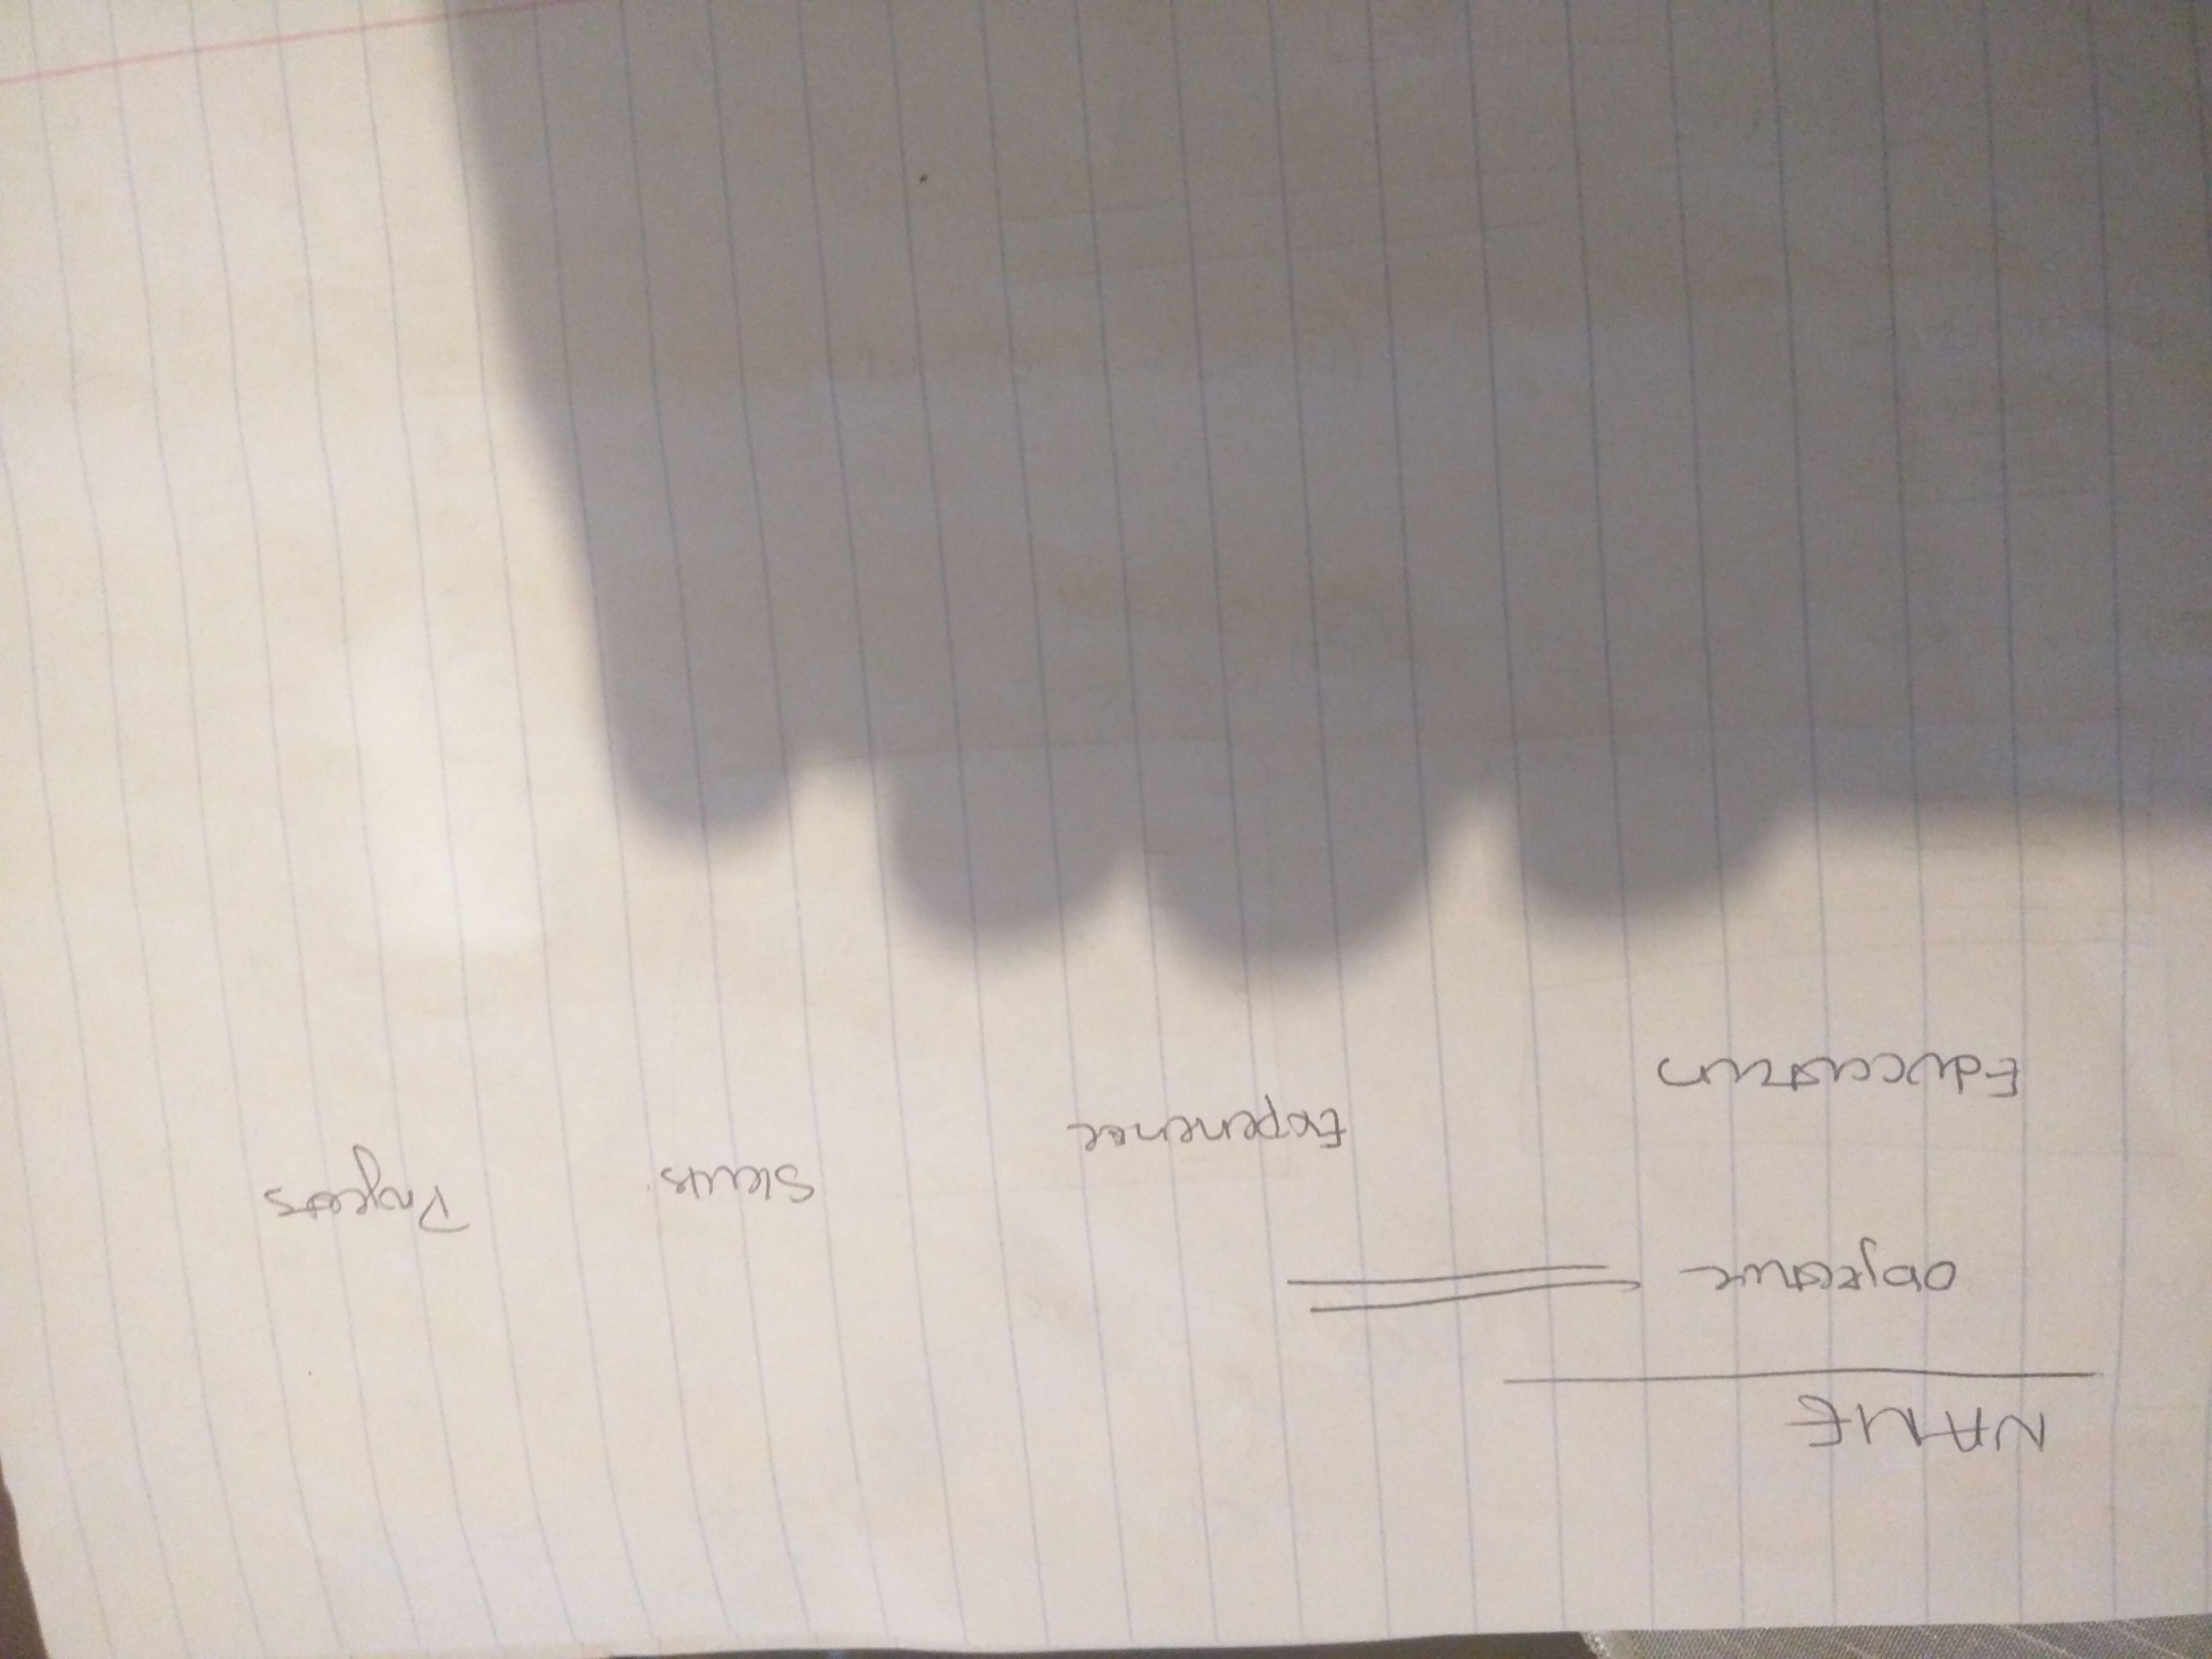 NAME
Objective
Education Experience Skills Projects